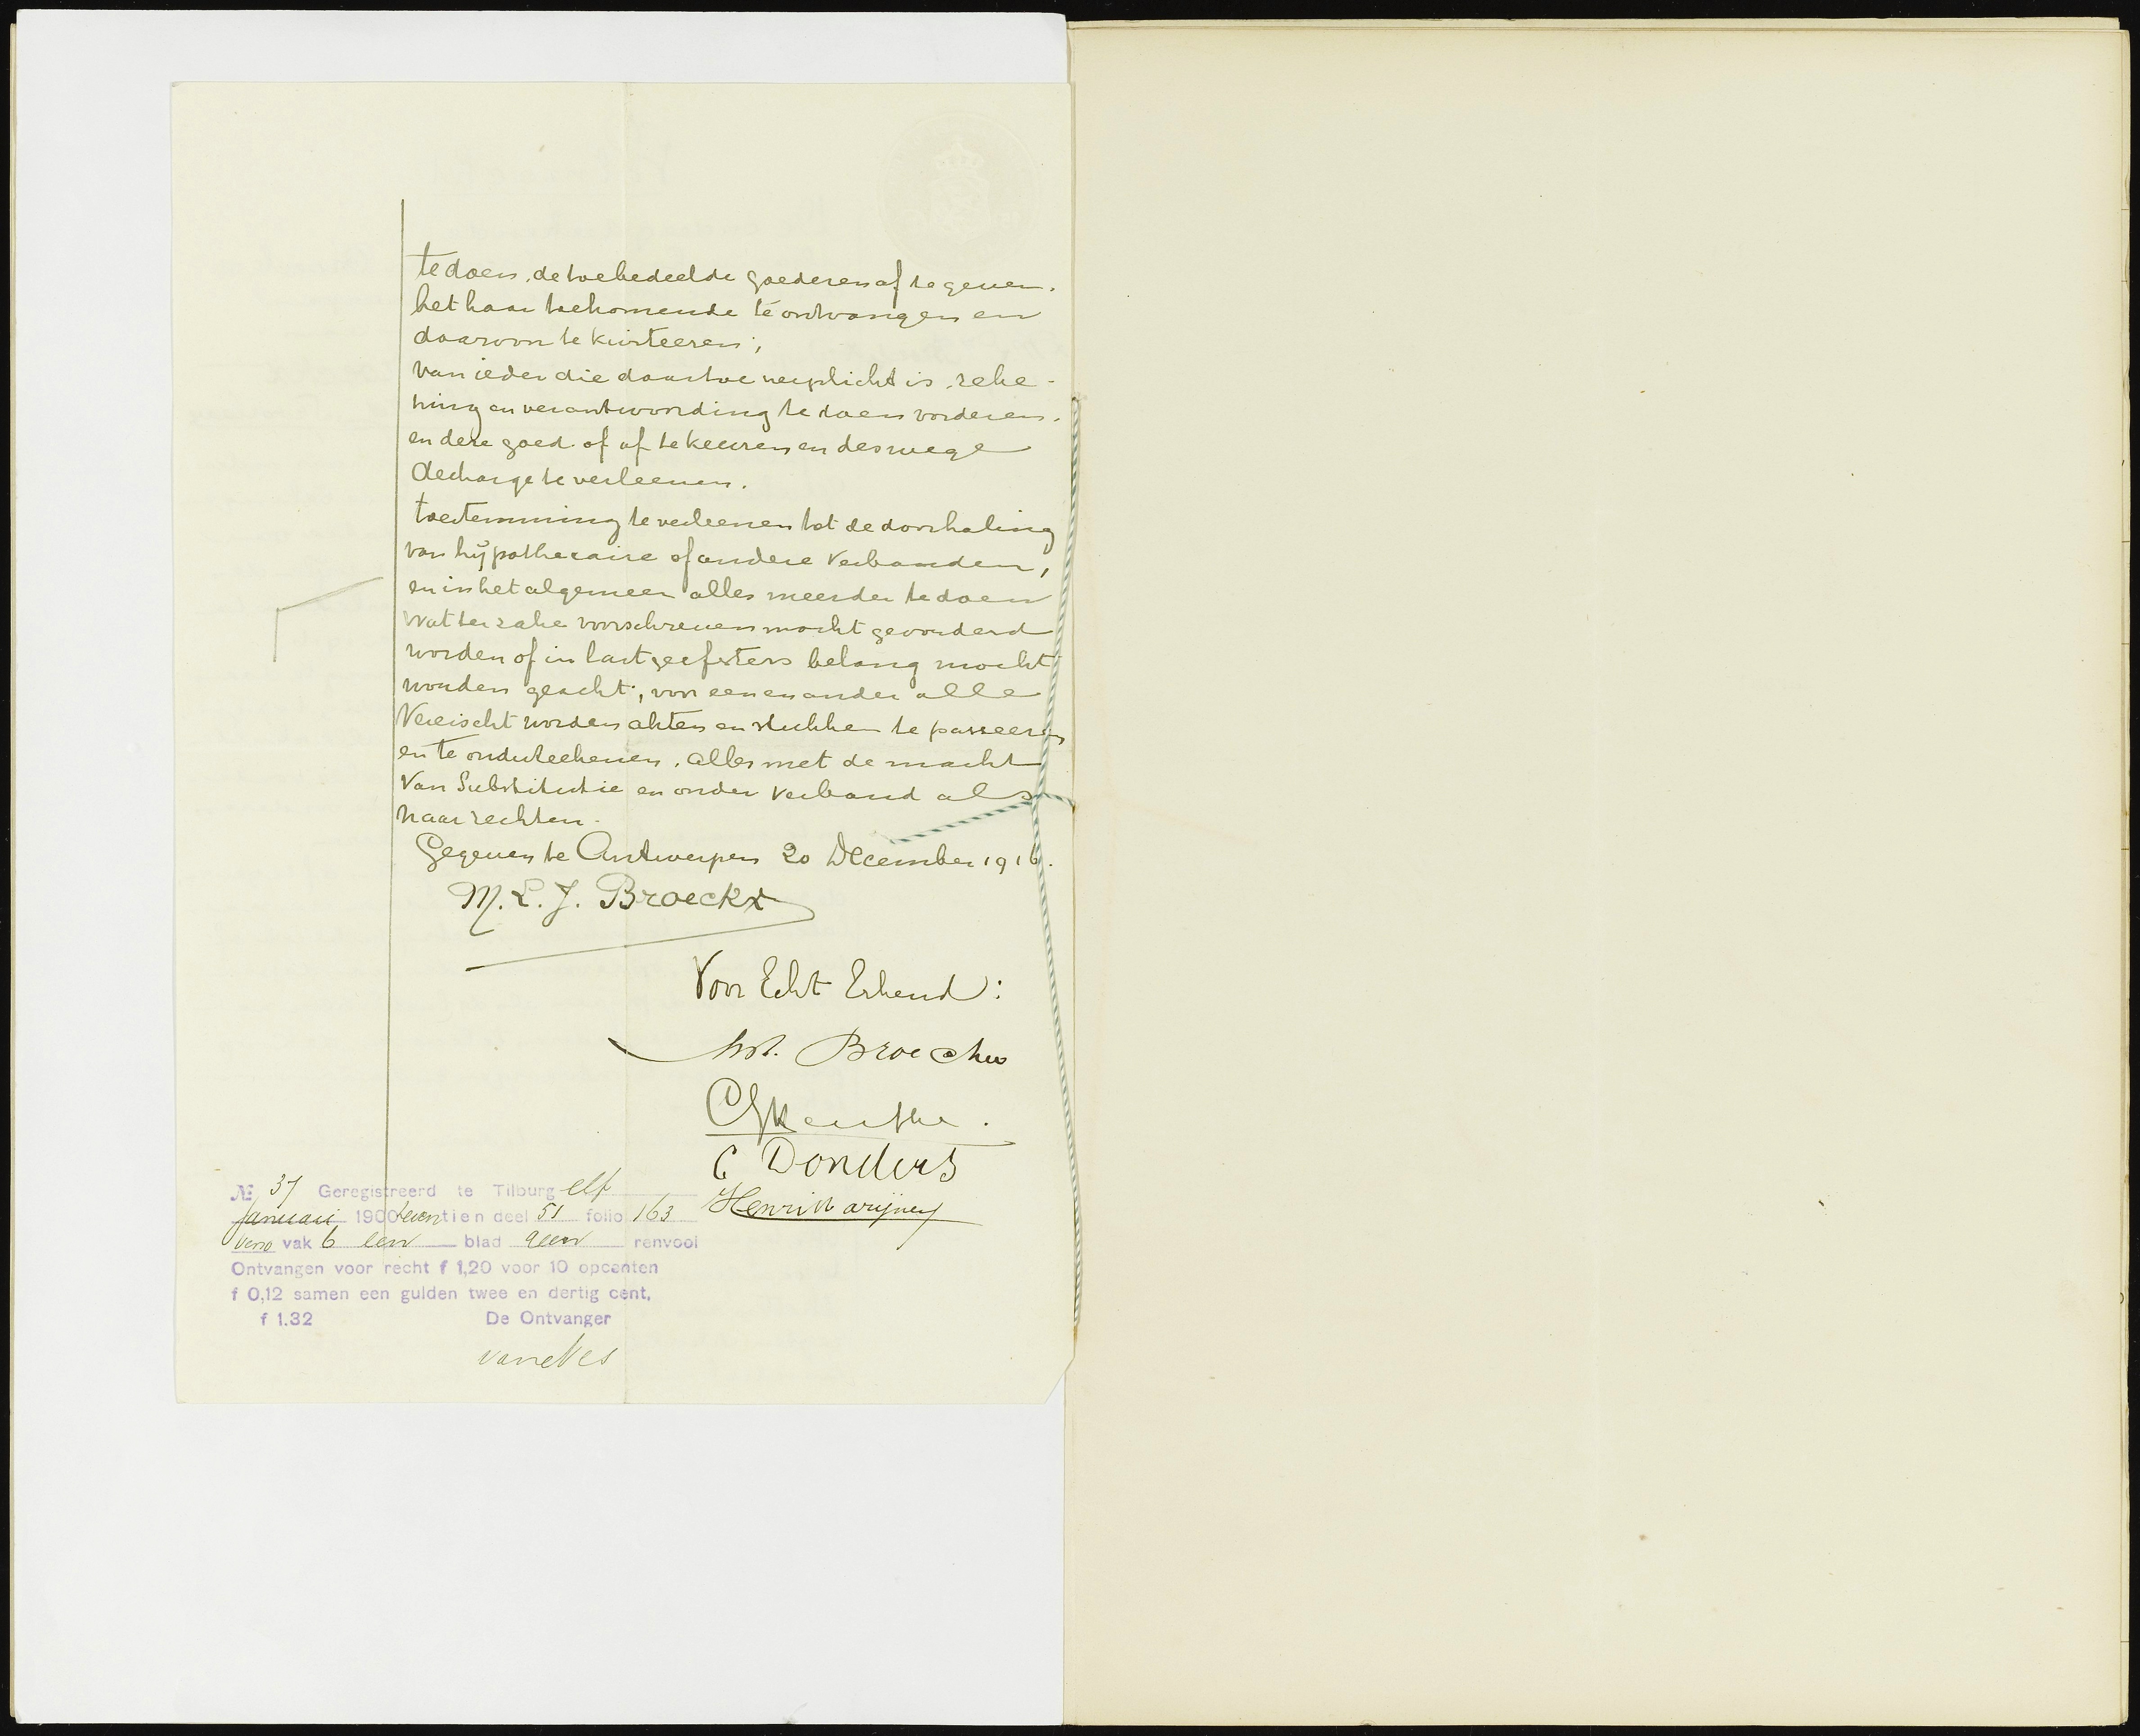 te doen, de toebedeelde goederen af te geven.
het haar toekomende te ontvangen en
daarvoor te kwiteeren;
van ieder die daartoe verplicht is, reke-
ning en verantwoording te doen vorderen.
en deze goed of af te keuren en deswege
decharge te verleenen.
toestemming te verleenen tot de doorhaling
van hypothecaire of andere verbanden,
en in het algemeen alles meerder te doen
wat ter zake voorschreven mocht gevorderd
worden of in lastgeefsters belang mocht
worden geacht; voor een en ander alle
Vereischt worden akten en stukken te passeeren
en te onderteekenen. alles met de macht
van Substitutie en onder verband als
naar rechten.
Gegeven te Antwerpen 20 December 1916.
M. L. J. Broeckx
Voor Echt Erkend:
Broeckx
C Donders
№ 37 Geregistreerd te Tilburg elf
Januari 1900 zeventien deel 51 folio 163
verso vak 6 een blad geen renvooi
Ontvangen voor recht f 1,20 voor 10 opcenten
f 0,12 samen een gulden twee en dertig cent,
f 1.32 De Ontvanger